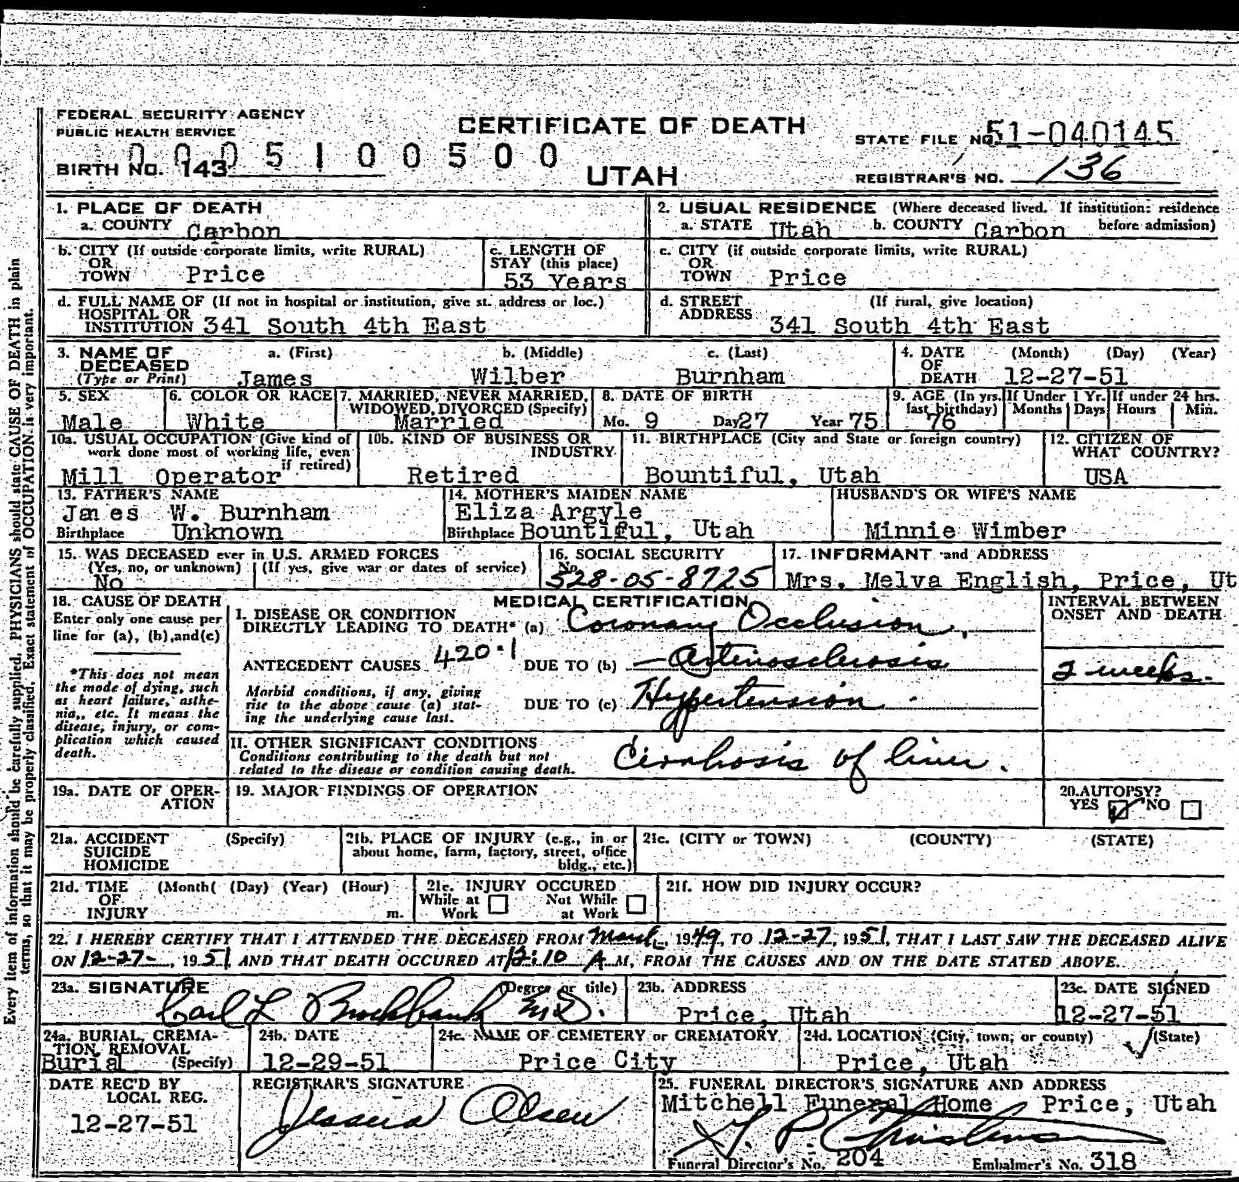 FEDERAL SECURITY AGENCY
PUBLIC HEALTH SERVICE
CERTIFICATE OF DEATH
UTAH
STATE FILE NO. 51-040145
0 0 0 5 1 0 0 5 0 0
BIRTH NO. 143
REGISTRAR'S NO. 136
1. PLACE OF DEATH
a. COUNTY Carbon
2. USUAL RESIDENCE (Where deceased lived. If institution: residence before admission)
a. STATE Utah b. COUNTY Carbon
b. CITY (If outside corporate limits, write RURAL) OR TOWN Price
c. LENGTH OF STAY (this place) 53 Years
c. CITY (if outside corporate limits, write RURAL) OR TOWN Price
d. FULL NAME OF (If not in hospital or institution, give st. address or loc.) HOSPITAL OR INSTITUTION 341 South 4th East
d. STREET ADDRESS (If rural, give location) 341 South 4th East
3. NAME OF DECEASED (Type or Print)
a. (First) James
b. (Middle) Wilber
c. (Last) Burnham
4. DATE OF DEATH (Month) (Day) (Year) 12-27-51
5. SEX Male
6. COLOR OR RACE White
7. MARRIED, NEVER MARRIED, WIDOWED, DIVORCED (Specify) Married
8. DATE OF BIRTH Mo. 9 Day 27 Year 75
9. AGE (In yrs. last birthday) 76
If Under 1 Yr. Months Days
If under 24 hrs. Hours Min.
10a. USUAL OCCUPATION (Give kind of work done most of working life, even if retired) Mill Operator
10b. KIND OF BUSINESS OR INDUSTRY Retired
11. BIRTHPLACE (City and State or foreign country) Bountiful, Utah
12. CITIZEN OF WHAT COUNTRY? USA
13. FATHER'S NAME James W. Burnham
Birthplace Unknown
14. MOTHER'S MAIDEN NAME Eliza Argyle
Birthplace Bountiful, Utah
HUSBAND'S OR WIFE'S NAME Minnie Wimber
15. WAS DECEASED ever in U.S. ARMED FORCES
(Yes, no, or unknown) (If yes, give war or dates of service)
No
16. SOCIAL SECURITY No. 528-05-8725
17. INFORMANT and ADDRESS Mrs. Melva English, Price, Ut
18. CAUSE OF DEATH
Enter only one cause per line for (a), (b), and (c)
*This does not mean the mode of dying, such as heart failure, asthenia,, etc. It means the disease, injury, or complication which caused death.
MEDICAL CERTIFICATION
I. DISEASE OR CONDITION DIRECTLY LEADING TO DEATH* (a) Coronary Occlusion.
ANTECEDENT CAUSES 420.1 DUE TO (b) Arteriosclerosis
Morbid conditions, if any, giving rise to the above cause (a) stating the underlying cause last.
DUE TO (c) Hypertension.
II. OTHER SIGNIFICANT CONDITIONS
Conditions contributing to the death but not related to the disease or condition causing death.
Cirrhosis of liver.
INTERVAL BETWEEN ONSET AND DEATH
2 weeks.
19a. DATE OF OPERATION
19. MAJOR FINDINGS OF OPERATION
20. AUTOPSY? YES NO
21a. ACCIDENT SUICIDE HOMICIDE (Specify)
21b. PLACE OF INJURY (e.g., in or about home, farm, factory, street, office bldg., etc.)
21c. (CITY or TOWN) (COUNTY) (STATE)
21d. TIME OF INJURY (Month( (Day) (Year) (Hour) m.
21e. INJURY OCCURED While at Work Not While at Work
21f. HOW DID INJURY OCCUR?
22. I HEREBY CERTIFY THAT I ATTENDED THE DECEASED FROM March, 1949, TO 12-27, 1951, THAT I LAST SAW THE DECEASED ALIVE
ON 12-27-, 1951 AND THAT DEATH OCCURED AT 2:10 A M, FROM THE CAUSES AND ON THE DATE STATED ABOVE.
23a. SIGNATURE (Degree or title) Carl L Brockbank M.D.
23b. ADDRESS Price, Utah
23c. DATE SIGNED 12-27-51
24a. BURIAL, CREMATION, REMOVAL (Specify) Burial
24b. DATE 12-29-51
24c. NAME OF CEMETERY OR CREMATORY Price City
24d. LOCATION (City, town; or county) (State) Price, Utah
DATE REC'D BY LOCAL REG. 12-27-51
REGISTRAR'S SIGNATURE Jessena Olsen
25. FUNERAL DIRECTOR'S SIGNATURE AND ADDRESS
Mitchell Funeral Home Price, Utah
Funeral Director's No. 204 Embalmer's No. 318
Every item of information should be carefully supplied. PHYSICIANS should state CAUSE OF DEATH in plain
terms, so that it may be properly classified. Exact statement of OCCUPATION is very important.